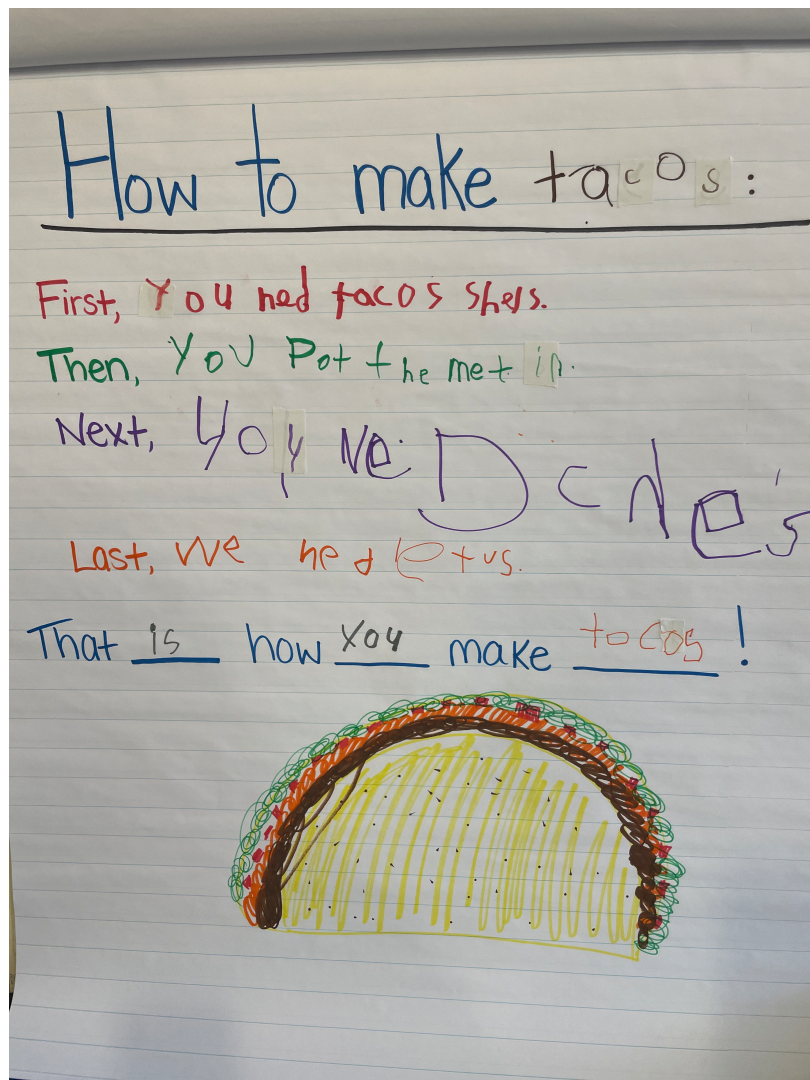 How to make tacos:
First, You ned tacos shels.
Then, YOU Pot the met in.
Next, You Ne
Last, We ned letus.
That is how you make tocos!